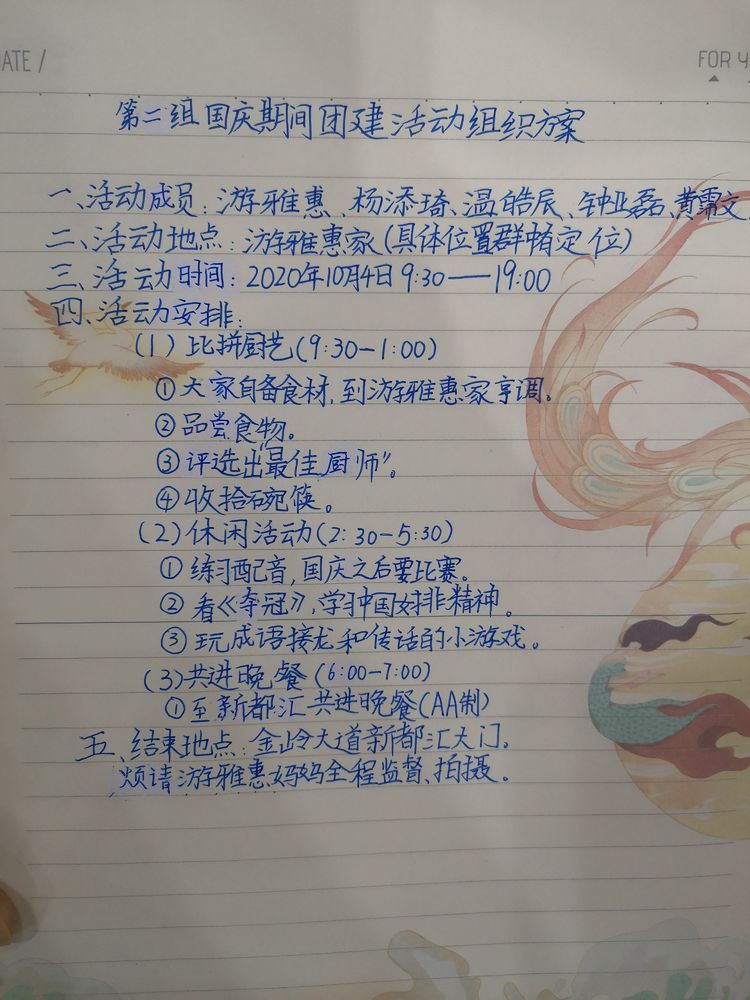 ATE /
FOR Y
第二组国庆期间团建活动组织方案
一、活动成员：游雅惠、杨添琦、温皓辰、钟业磊、黄霈文
二、活动地点：游雅惠家(具体位置群中有定位)
三、活动时间：2020年10月4日9:30——19:00
四、活动安排：
(1)比拼厨艺(9:30-1:00)
①大家自备食材,到游雅惠家亨调。
②品尝食物。
③评选出“最佳厨师”。
④收拾碗筷。
(2)休闲活动(2:30-5:30)
①练习配音,国庆之后要比赛。
②看《夺冠》,学习中国女排精神。
③玩成语接龙和传话的小游戏。
(3)共进晚餐(6:00-7:00)
①至新都汇共进晚餐(AA制)
五、结束地点：金岭大道新都汇大门。
烦请游雅惠妈妈全程监督、拍摄。